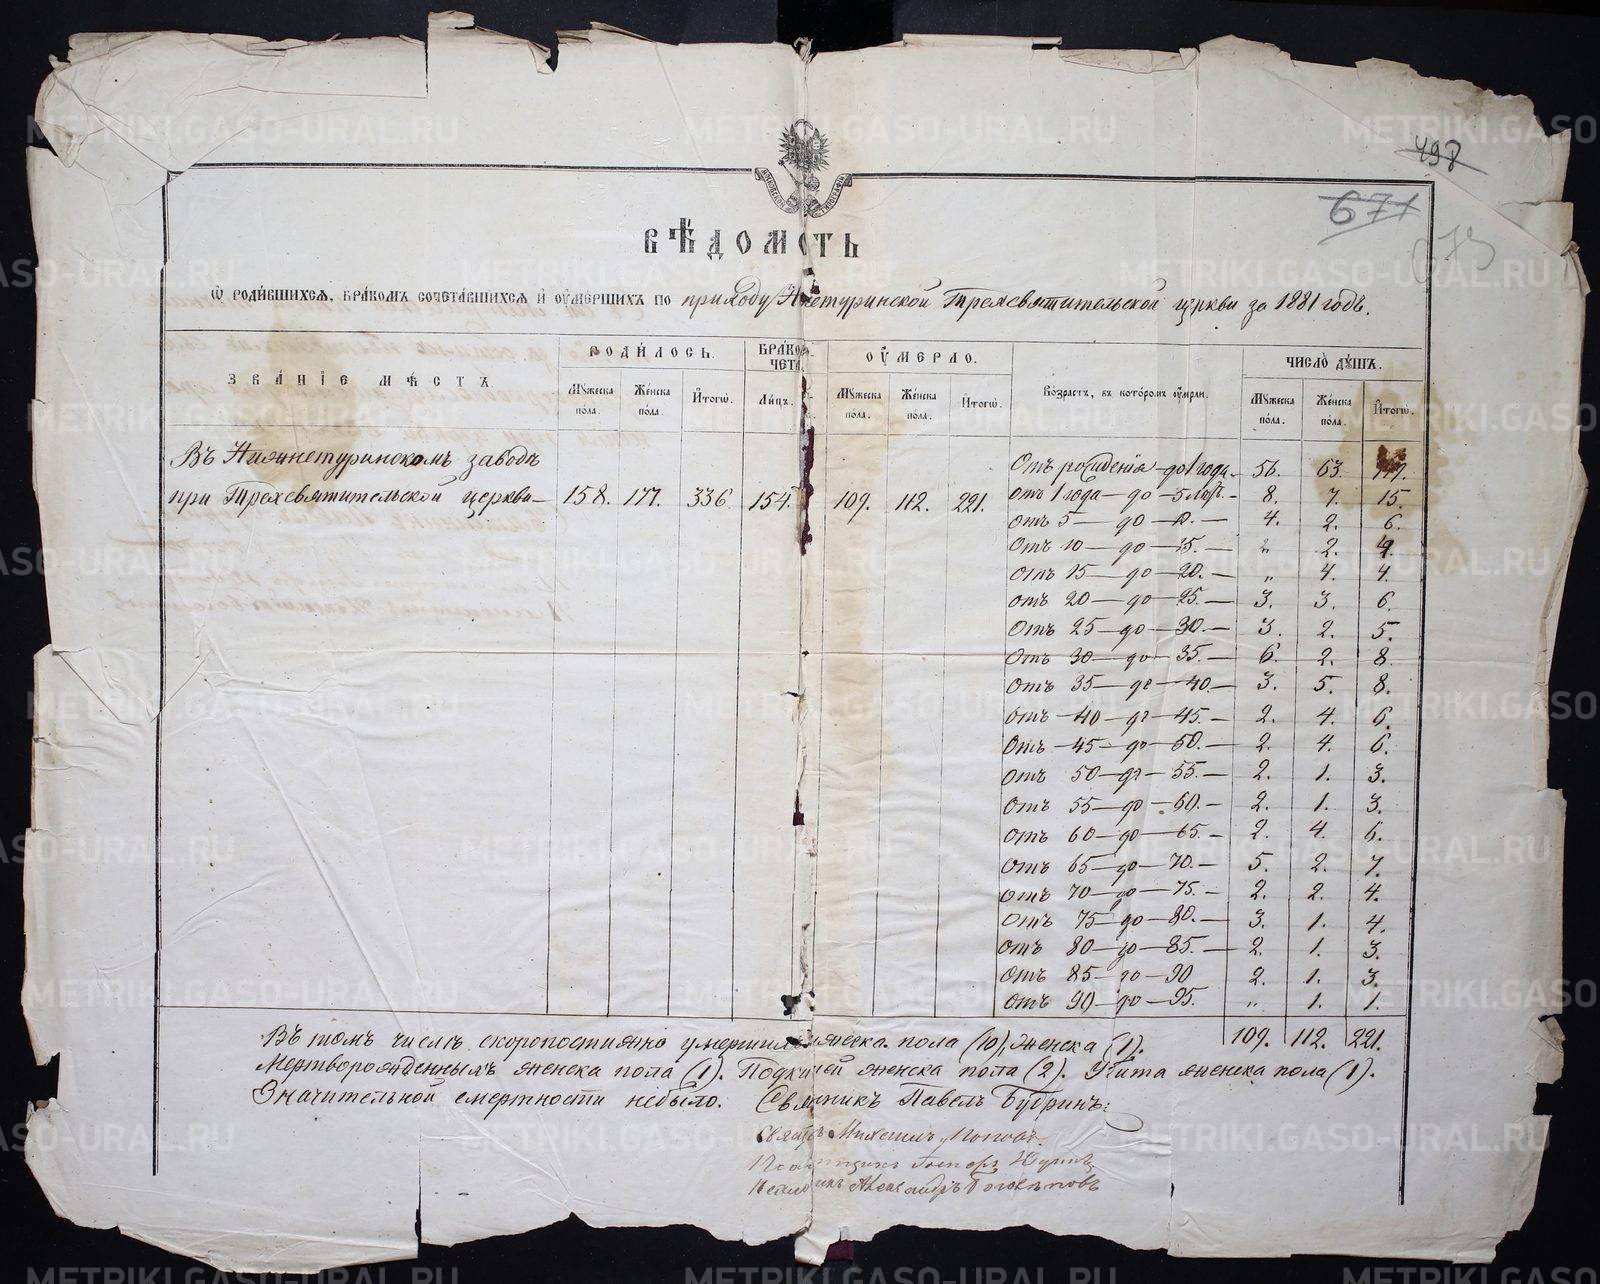 498
671
673
ВѢДОМОСТЬ
Ѡ РОДИВШИХСЯ, БРАКОМЪ СОЧЕТАВШИХСЯ И ОУМЕРШИХЪ ПО приходу Нижнетуринской Трехсвятительской церкви за 1881 годъ.
ЗВАНІЕ МѢСТЪ
РОДИЛОСЬ.
БРАКОМЪ СОЧЕТА.
ОУМЕРЛО.
Возрастъ, въ которомъ оумерли.
ЧИСЛО ДУШЪ.
Мужеска пола.
Женска пола.
Итогѡ.
Лицъ.
Мужеска пола.
Женска пола.
Итогѡ.
Мужеска пола.
Женска пола.
Итогѡ.
Въ Нижнетуринскомъ заводѣ
при Трехсвятительской церкви— 158. 177. 336. 154. 109. 112. 221.
Отъ рожденія—до 1 года— 56. 63. 119.
отъ 1 года — до — 5 — 8. 7. 15.
отъ 5 — до — 10. — 4. 2. 6.
Отъ 10 — до — 15. — 2. 2. 4.
Отъ 15 — до — 20. — „ 4. 4.
отъ 20 — до — 25. — 3. 3. 6.
Отъ 25 — до — 30. — 3. 2. 5.
Отъ 30 — до — 35. — 6. 2. 8.
Отъ 35 — до — 40. — 3. 5. 8.
Отъ 40 — до — 45. — 2. 4. 6.
Отъ 45 — до — 50. — 2. 4. 6.
Отъ 50 — до — 55. — 2. 1. 3.
Отъ 55 — до — 60. — 2. 1. 3.
Отъ 60 — до — 65. — 2. 4. 6.
Отъ 65 — до — 70. — 5. 2. 7.
Отъ 70 — до — 75. — 2. 2. 4.
Отъ 75 — до — 80. — 3. 1. 4.
Отъ 80 — до — 85. — 2. 1. 3.
Отъ 85 — до — 90 2. 1. 3.
Отъ 90 — до — 95. „ 1. 1.
109. 112. 221.
Въ томъ числѣ скоропостижно умершихъ мужеска пола (10), женска (1).
Мертворожденныхъ женска пола (1). женска пола (2). женска пола (1).
Значительной смертности небыло. Священникъ Павелъ Бубринъ:
Михаилъ Поповъ.
Псаломщикъ
Александръ Боголѣповъ
METRIKI.GASO-URAL.RU